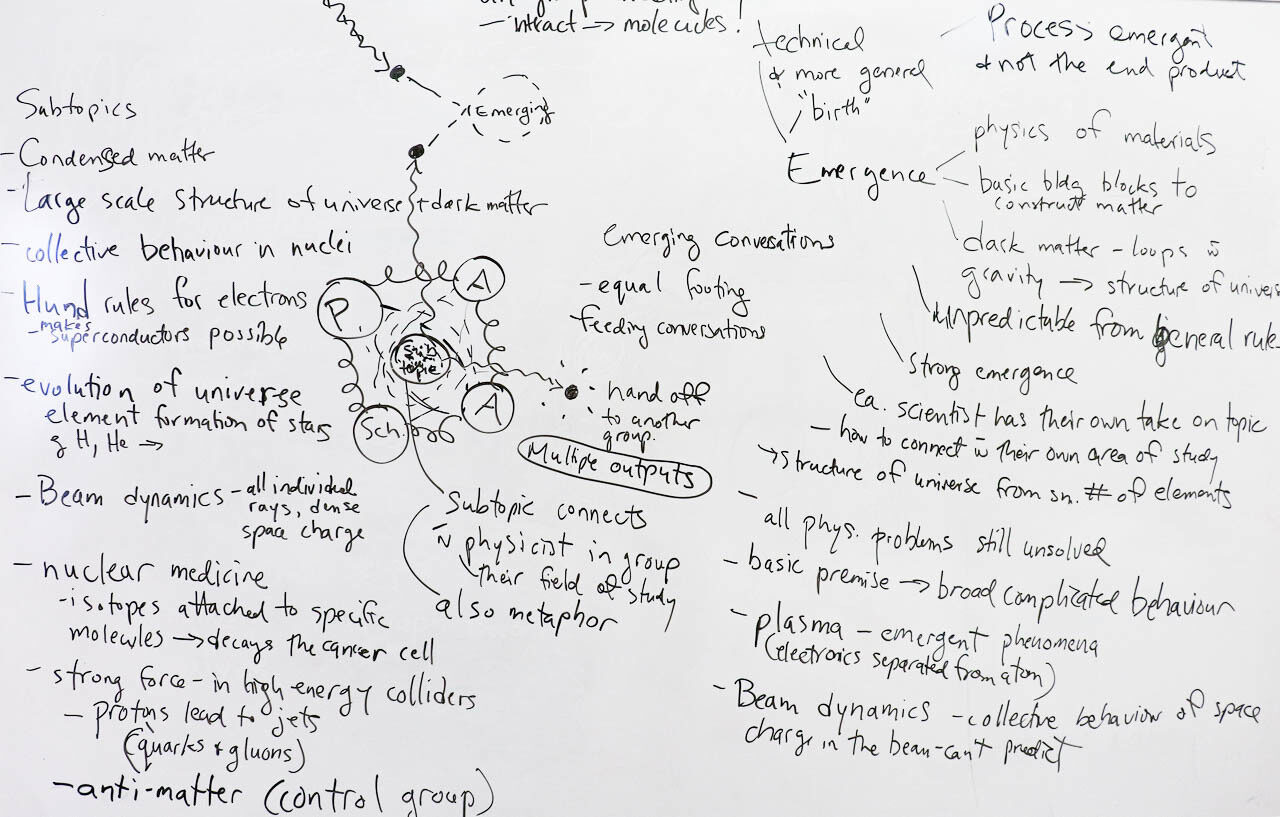 - interact → molecules!
Emerging
Subtopics
- Condensed matter
- Large scale structure of universe + dark matter
- collective behaviour in nuclei
- Hund rules for electrons
- makes
superconductors possible
- evolution of universe
element formation of stars
g H, He →
- Beam dynamics - all individual
rays, dense
space charge
- nuclear medicine
- isotopes attached to specific
molecules → decays the cancer cell
- strong force - in high energy colliders
- protons lead to jets
(quarks + gluons)
- anti-matter (control group)
P.
A
A
Sch.
Sub
topic
emerging conversations
- equal footing
feeding conversations
- hand off
to another
group.
Multiple outputs
Subtopic connects
w̄ physicist in group
their field of study
also metaphor
technical
& more general
"birth"
Process emergent
& not the end product
Emergence
physics of materials
basic bldg blocks to
construct matter
dark matter - loops w̄
gravity → structure of univers
unpredictable from general rules
strong emergence
ea. scientist has their own take on topic
- how to connect w̄ their own area of study
→ structure of universe from sm. # of elements
- all phys. problems still unsolved
- basic premise → broad complicated behaviour
- plasma - emergent phenomena
(electronics separated from atom)
- Beam dynamics - collective behaviour of space
charge in the beam - can't predict